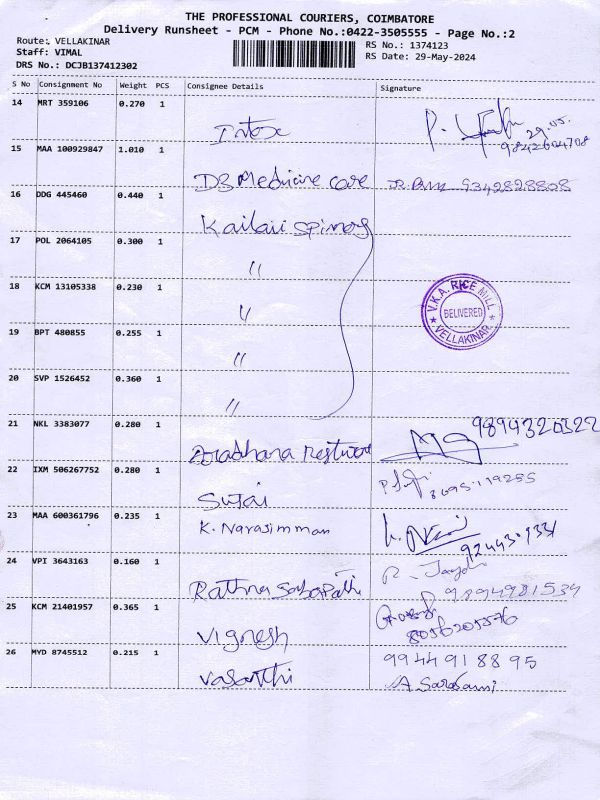 THE PROFESSIONAL COURIERS, COIMBATORE
Delivery Runsheet - PCM - Phone No.:0422-3505555 - Page No.:2
Route: VELLAKINAR
Staff: VIMAL
DRS No.: DCJB137412302
RS No.: 1374123
RS Date: 29-May-2024
S No Consignment No Weight PCS Consignee Details Signature
14 MRT 359106 0.270 1
Intex P. 29.05.
9842604708
15 MAA 100929847 1.010 1
D3 Medicine care 9342828808
16 DDG 445460 0.440 1
Kailaii
17 POL 2064105 0.300 1
"
18 KCM 13105338 0.230 1
"
V.K.A. RICE MILL
DELIVERED
★ VELLAKINAR ★
19 BPT 480855 0.255 1
"
20 SVP 1526452 0.360 1
"
21 NKL 3383077 0.280 1 9894320322
Aradhana
22 IXM 506267752 0.280 1
Sujai
23 MAA 600361796 0.235 1
K. Narasimman
24 VPI 3643163 0.160 1
Rathna Sabapathi 9894981534
25 KCM 21401957 0.365 1
Vignesh 8056205576
26 MYD 8745512 0.215 1 9944918895
Vasanthi A Sarasami